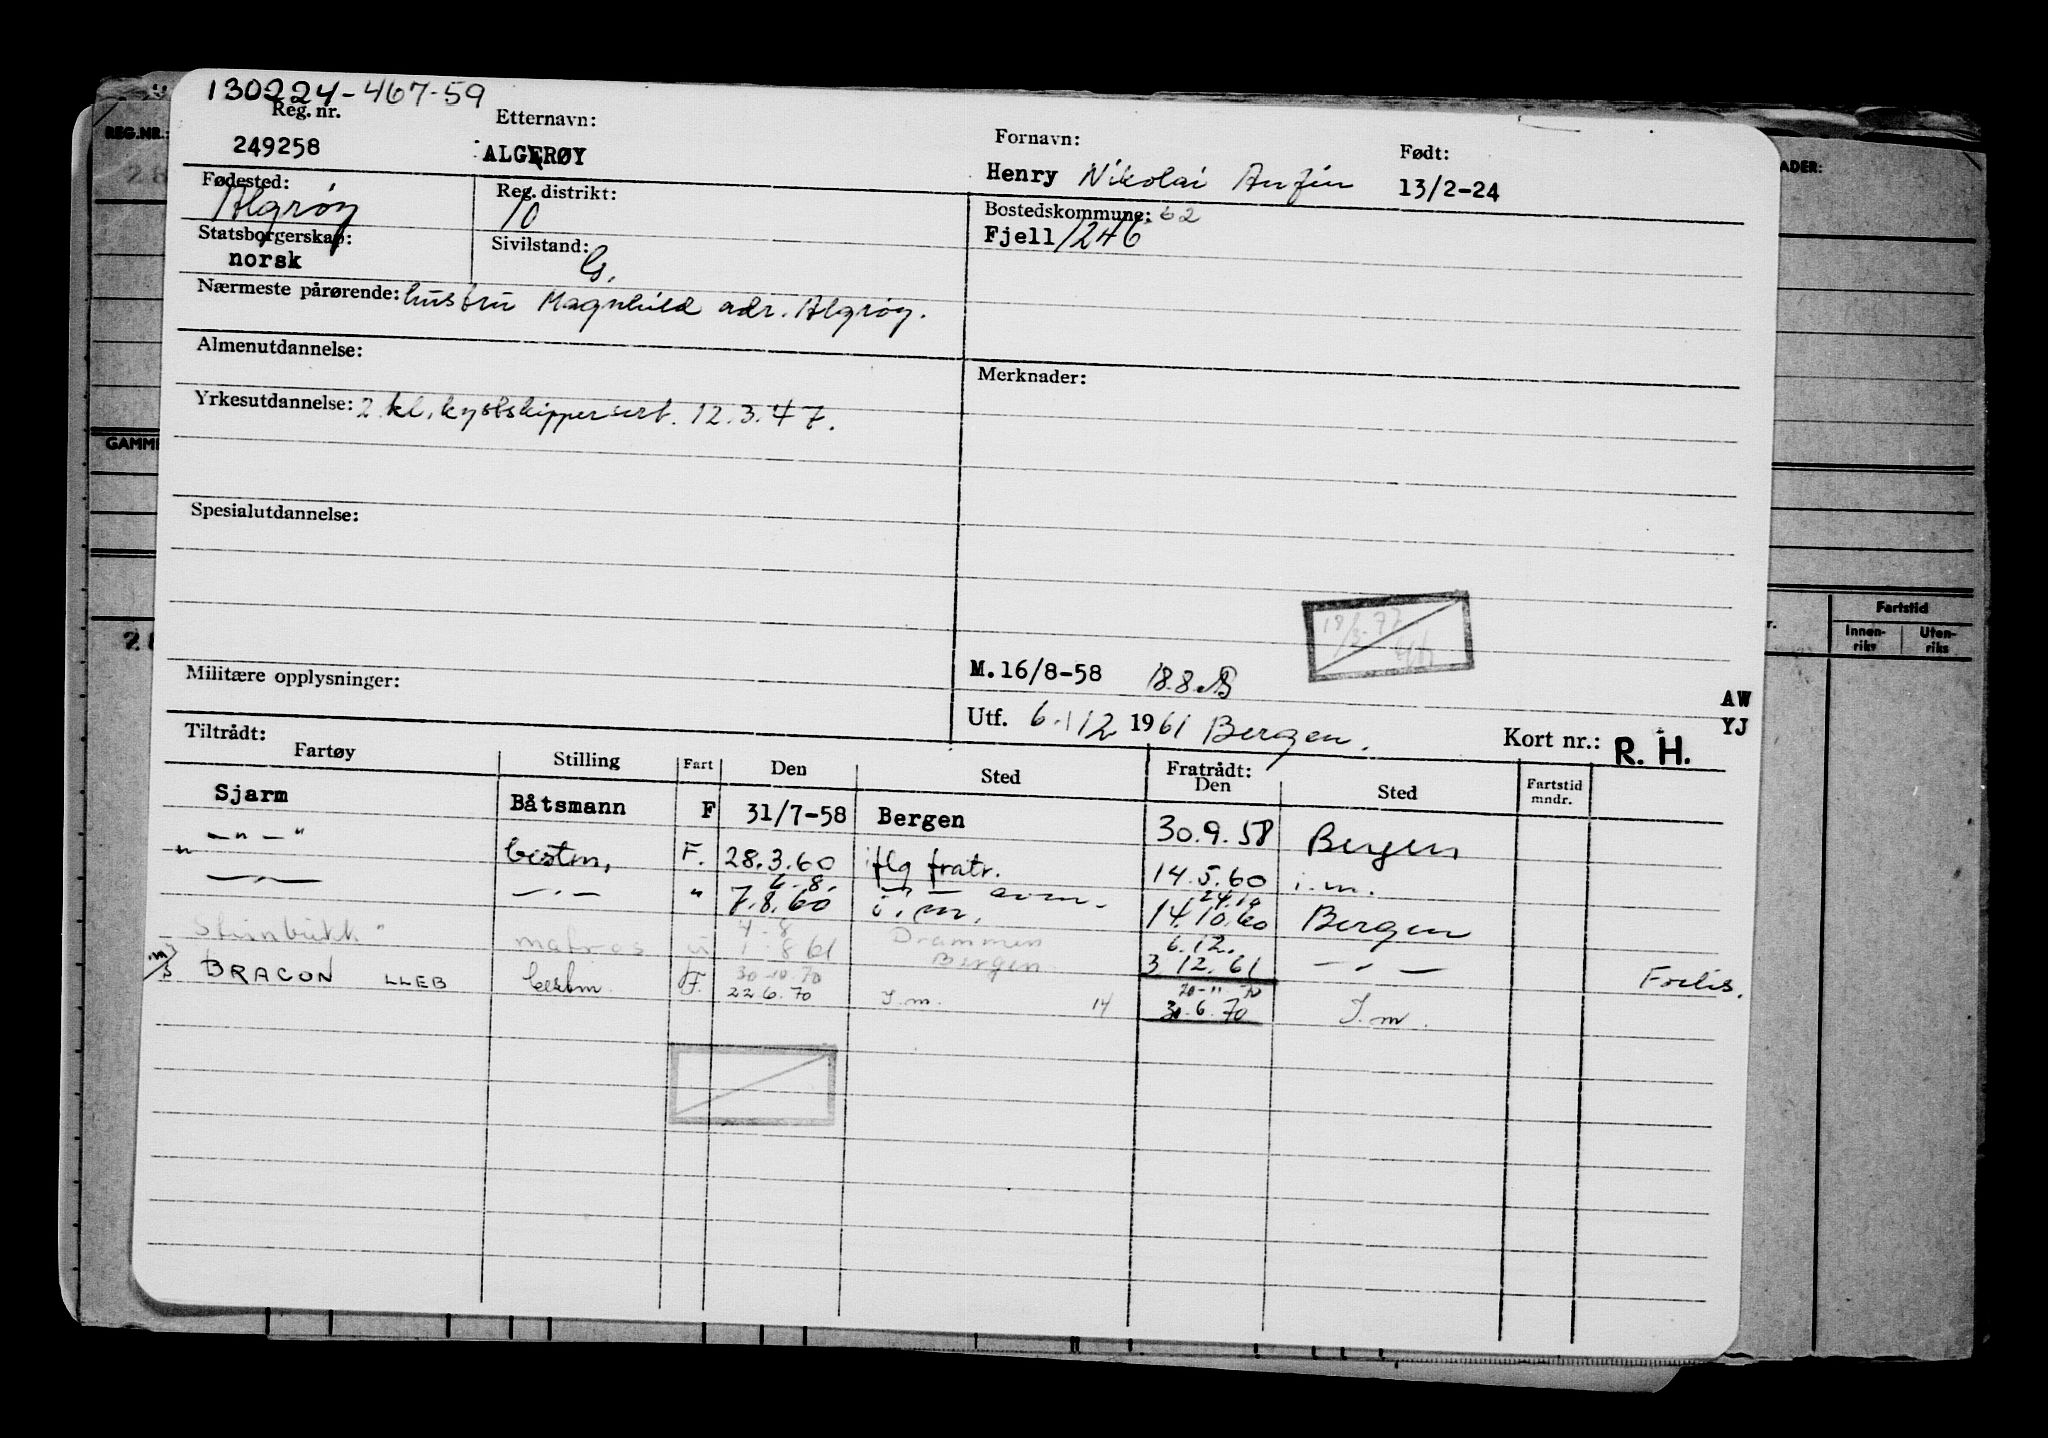 130224-467-59
Reg. nr. Etternavn: Fornavn: Født:
249258 ALGERØY Henry Nikolai Anfin 13/2-24
Fødested: Reg. distrikt: Bostedskommune: 62
Algrøy 10 Fjell 1246
Statsborgerskap: Sivilstand:
norsk G.
Nærmeste pårørende: hustru Magnhild adr. Algrøy.
Almenutdannelse: Merknader:
Yrkesutdannelse: 2 kl. kystskippersert. 12.3.47.
Spesialutdannelse:
Militære opplysninger: M.16/8-58 18.8.
AW
Utf. 6/12 1961 Bergen. Kort nr.: R. H. YJ
Tiltrådt: Fratrådt:
Fartøy Stilling Fart Den Sted Den Sted Fartstid mndr.
Sjarm Båtsmann F 31/7-58 Bergen 30.9.58 Bergen
—"—" bestm, F. 28.3.60 iflg fratr. 14.5.60 i.m.
" 6.8. 24.10
—"— —"— " 7.8.60 i.m. 14.10.60 Bergen
4-8 Drammen 6.12.
Steinbukk matros u 1.8 61 Bergen 3 12.61 —"— Forlis.
30-10.70 20-11-70
m/s BRACON LLEB bestm. F. 22.6.70 I.m. 14 30.6.70 I.m.
REG.NR.:
GAMM
ADER:
Fartstid
Innen-riks Uten-riks